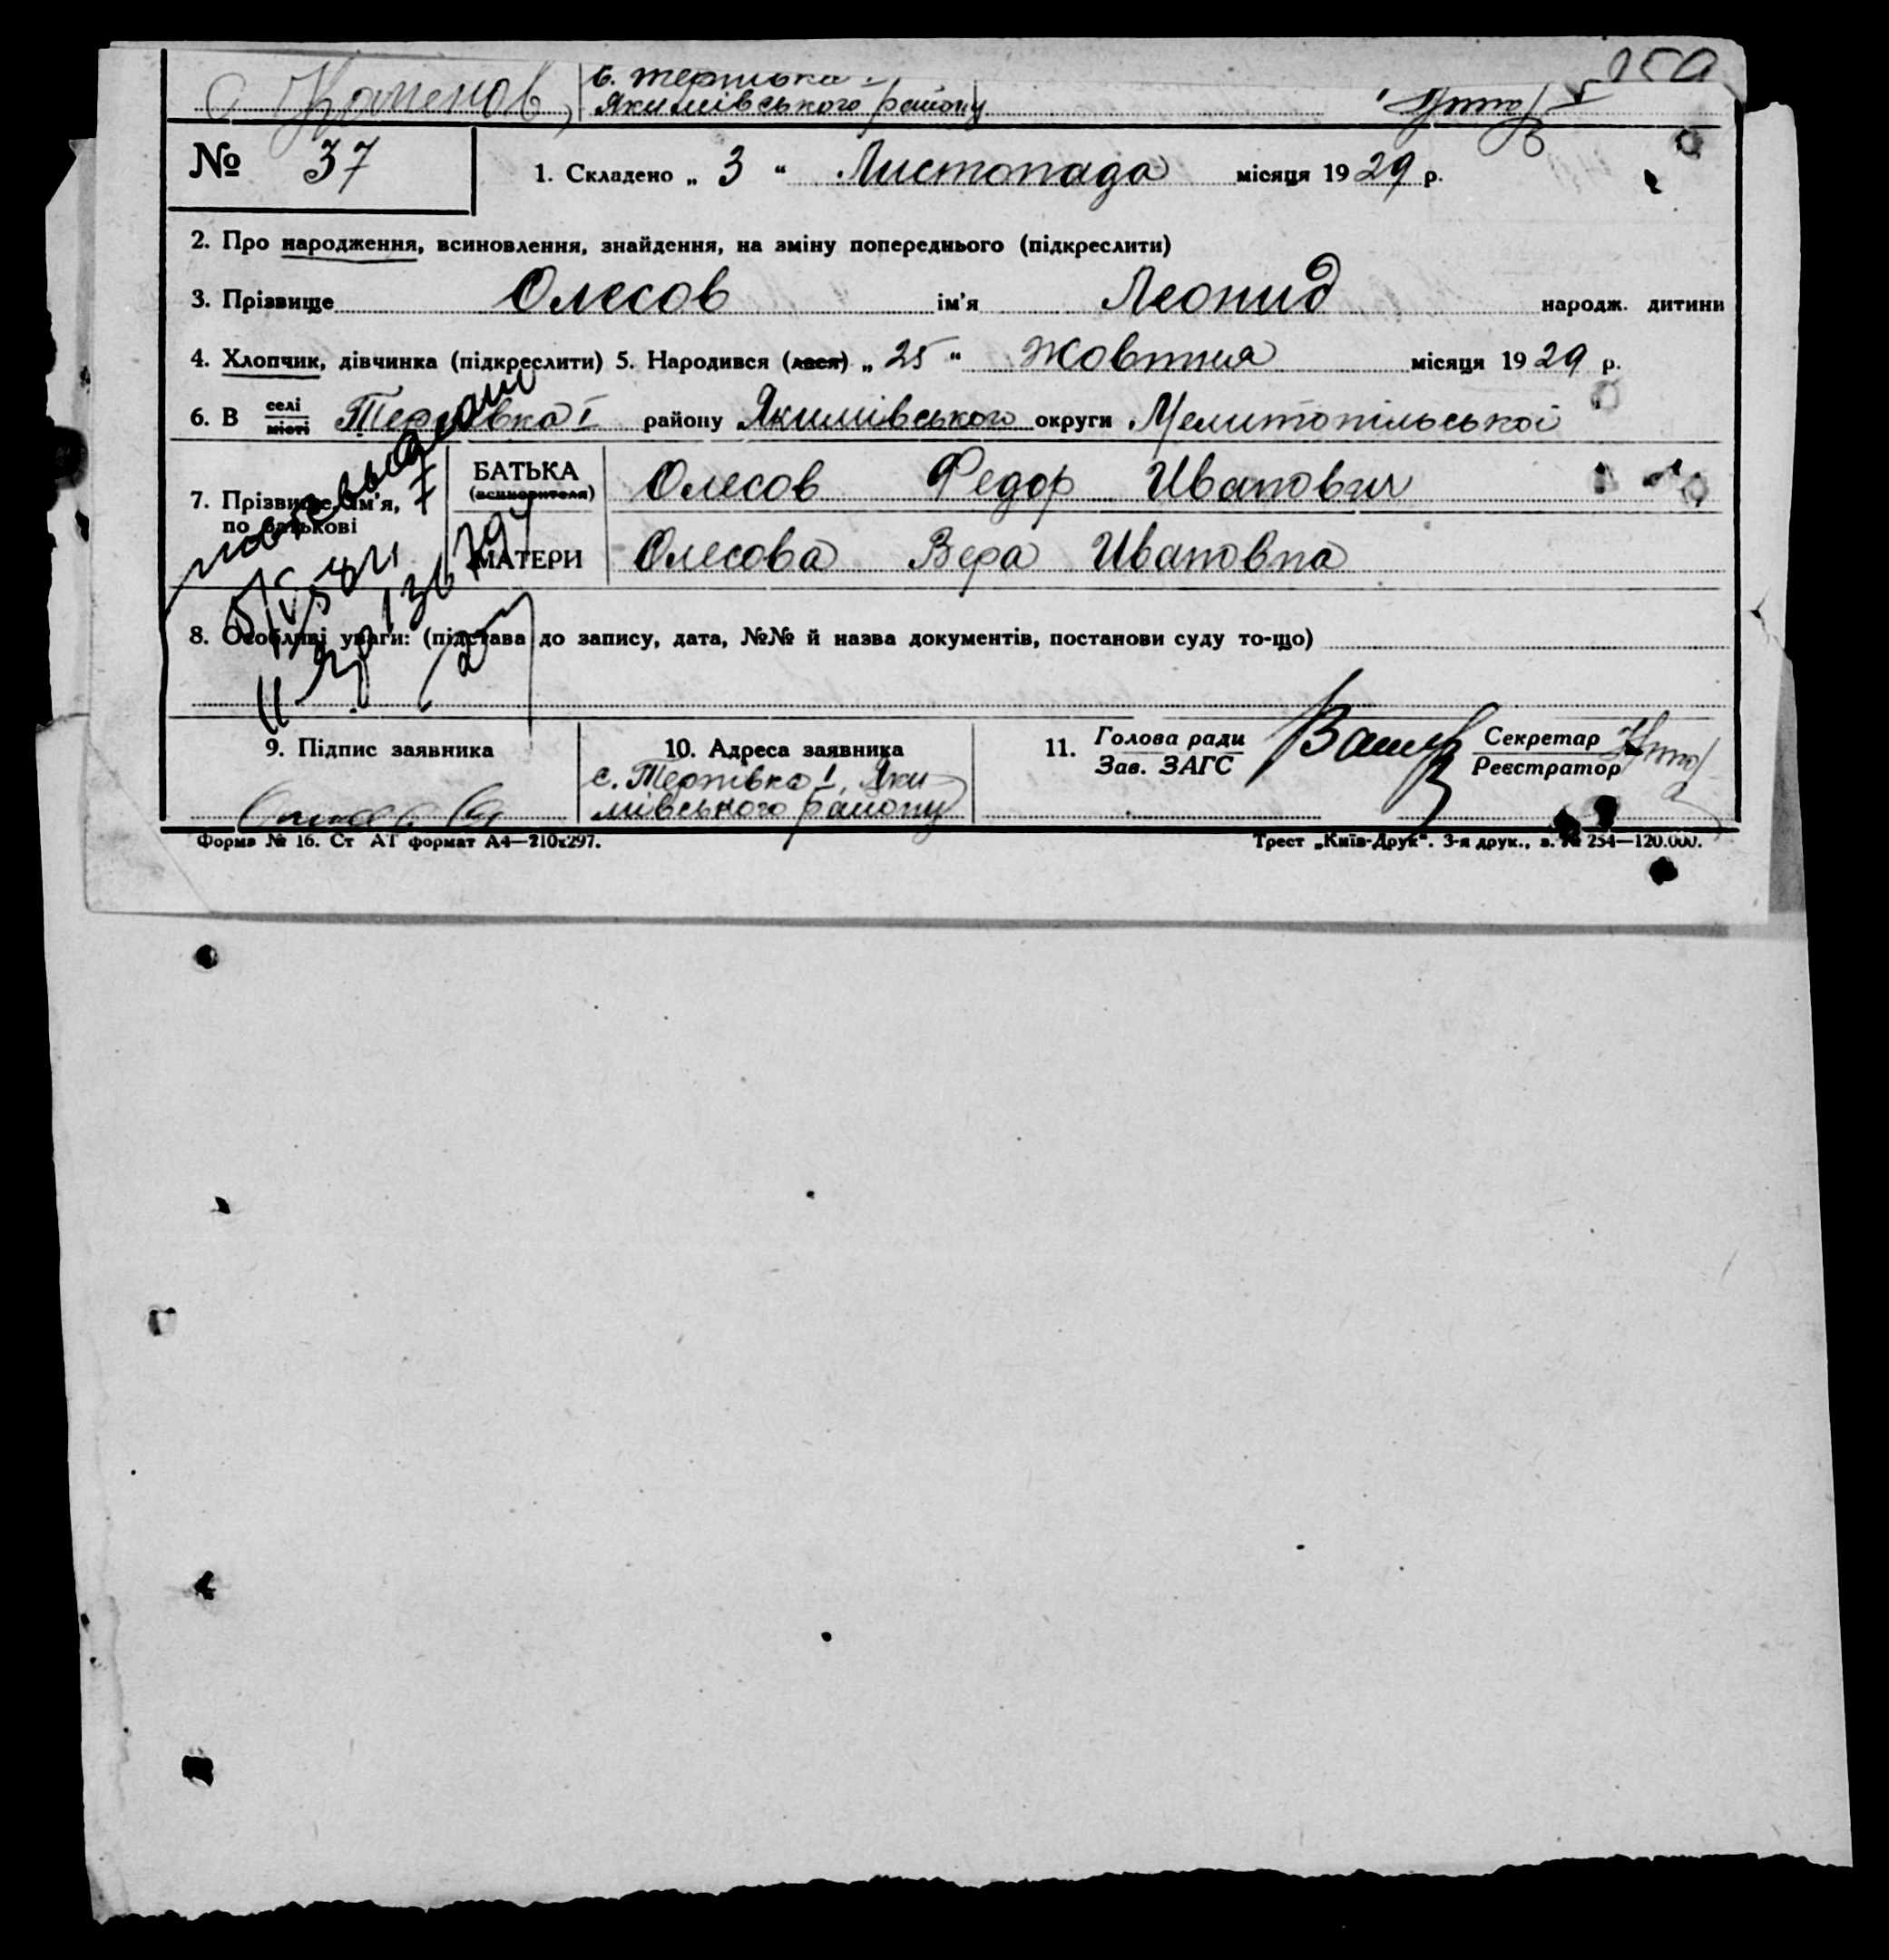 Якимівського району
№ 37
1. Складено „ 3 “ Листопада місяця 1929 р.
2. Про народження, всиновлення, знайдення, на зміну попереднього (підкреслити)
3. Прізвище Олесов ім’я Леонид народж. дитини
4. Хлопчик, дівчинка (підкреслити) 5. Народився (лася) „ 25 “ Жовтня місяця 1929 р.
6. В селі місті I району Якимівського округи Мелитопільської
7. Прізвище, ім’я, по батькові
БАТЬКА (всиновителя) Олесов Федор Иванович
МАТЕРИ Олесова Вера Ивановна
8. Особливі уваги: (підстава до запису, дата, №№ й назва документів, постанови суду то-що)
9. Підпис заявника
10. Адреса заявника
с. I, Яки
мівського району
11. Голова ради
Зав. ЗАГС
Секретар
Реєстратор
Форма № 16. Ст АТ формат А4—210х297.
Трест „Київ-Друк“. 3-я друк., з. № 254—120.000.